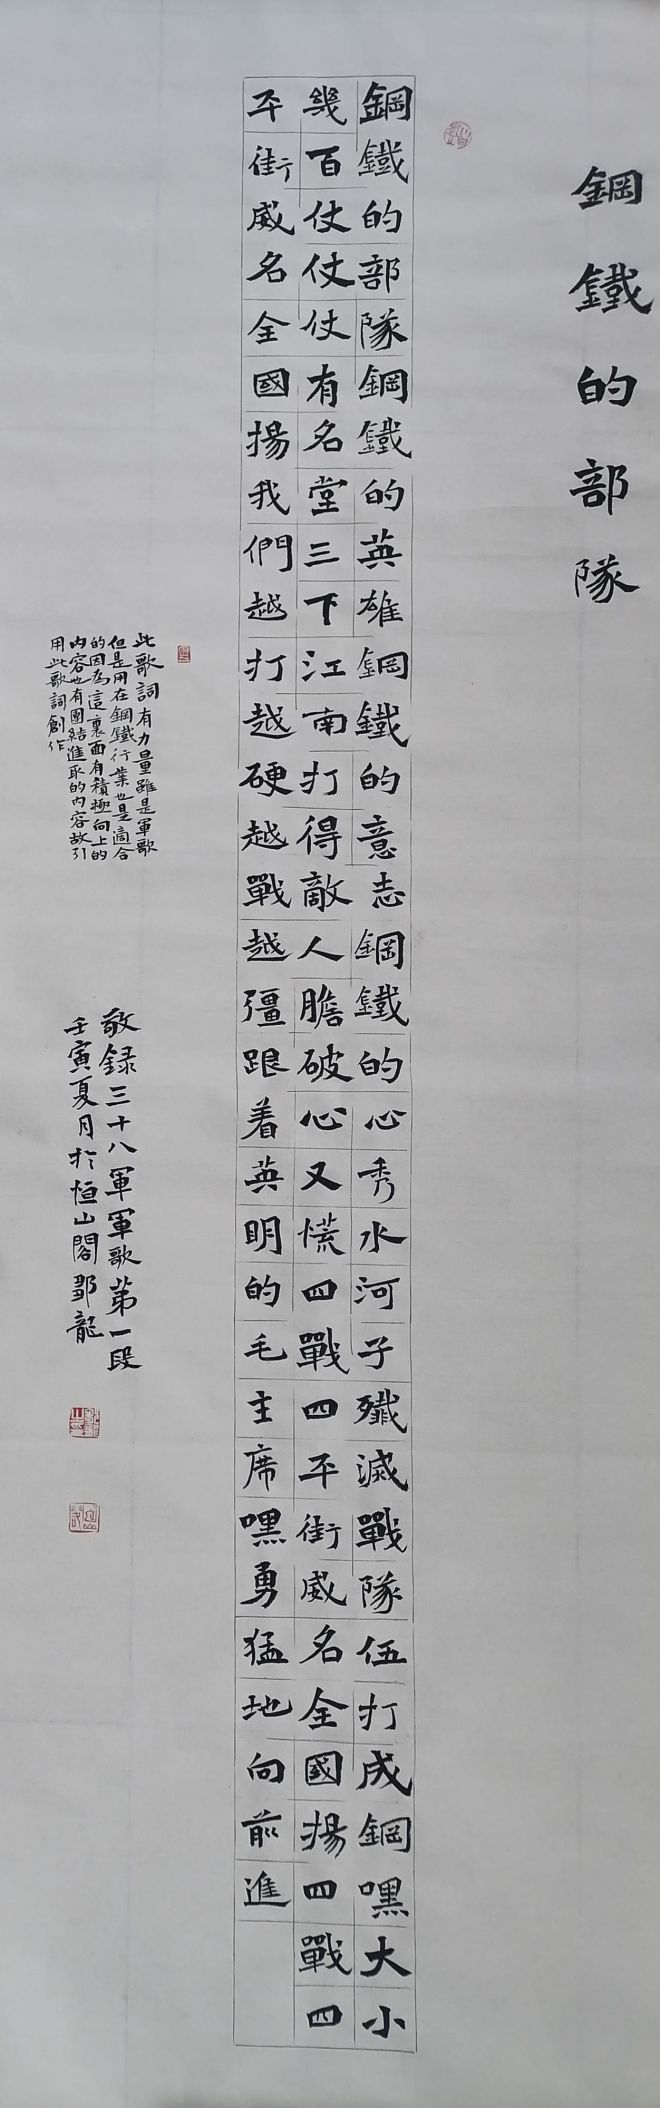 鋼鐵的部隊
鋼鐵的部隊鋼鐵的英雄鋼鐵的意志鋼鐵的心秀水河子殲滅戰隊伍打成鋼嘿大小
幾百仗仗仗有名堂三下江南打得敵人膽破心又慌四戰四平街威名全國揚四戰四
平街威名全國揚我們越打越硬越戰越彊跟着英明的毛主席嘿勇猛地向前進
此歌詞有力量雖是軍歌
但是用在鋼鐵行業也是適合
的因為這裏面有積極向上的
内容也有團結進取的内容故引
用此歌詞創作
敬録三十八軍軍歌第一段
壬寅夏月於恒山閣鄒龍